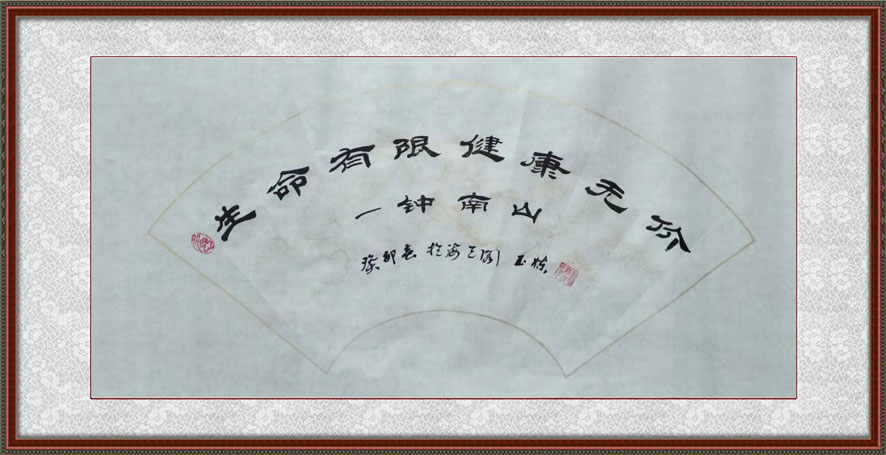 生命有限健康无价
一钟南山
癸卯春于海天阁 玉栋